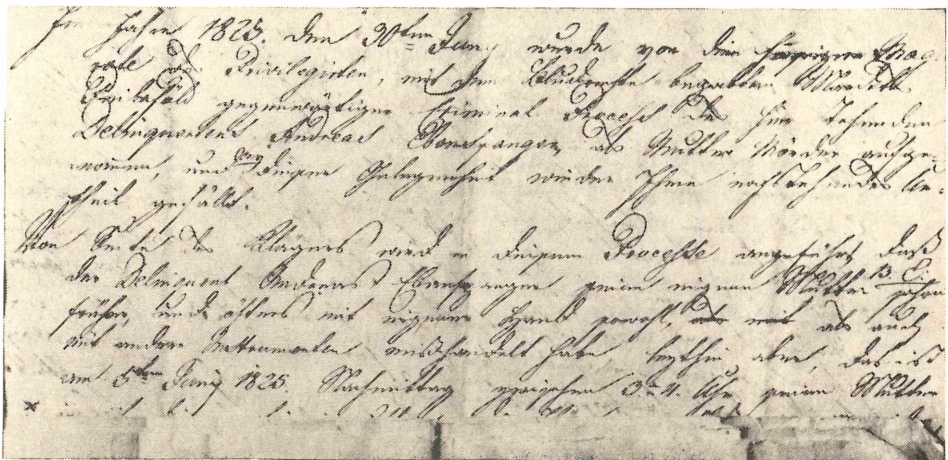 Im Jahre 1825. den 30ten Juny wurde von dem hiesigen Mag-
rate des Privilegirten, mit dem Blutrechte begabten Marckts
gegenwärtiger Criminal Process des hier stehenden
Delinquenten Andreas Ebenspanger, als Mutter Mörder aufge-
nommen und bey dieser Gelegenheit wieder Ihme nachstehendes Ur-
theil gefällt.
Von Seite des Klägers wird in diesem Processe angeführt, daß
der Delinquent Andreas Ebenspanger seine eigene Mutter schon
früher, und öfters mit eigener Hand sowohl, als auch
mit andern Instrumenten mißhandelt habe letzthin aber, das ist
am 5ten Juny 1825 Nachmittag zwischen 3 u 4 Uhr seine Mutter